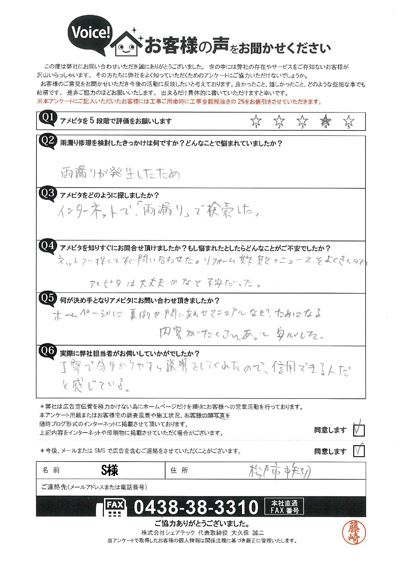 Voice!
お客様の声をお聞かせください
この度は弊社にお問い合わせいただき誠にありがとうございました。世の中には弊社の存在やサービスをご存知ないお客様が
沢山いらっしゃいます。その方たちに弊社をよく知っていただくためのアンケートにご協力いただけないでしょうか。
お客様のご意見をお聞かせいただき今後の活動に反映したいと考えております。良かったこと、嬉しかったこと、どのような些細な事でも
結構です。是非ご協力のほどお願いいたします。出来るだけ具体的に書いていただけますと幸いです。
※本アンケートにご記入いただいたお客様には工事ご用命時に工事金額税抜きの2%をお値引きさせていただきます。
Q1 アメピタを5段階で評価をお願いします ☆ ☆ ☆ ☆ ☆
Q2 雨漏り修理を検討したきっかけは何ですか？どんなことで悩まれていましたか？
雨漏りが発生したため
Q3 アメピタをどのように探しましたか？
インターネットで、「雨漏り」で検索した。
Q4 アメピタを知りすぐにお問合せ頂けましたか？もし悩まれたとしたらどんなことがご不安でしたか？
ネットで探してすぐ問い合わせた。リフォーム詐欺のニュースをよくきくので
アメピタは大丈夫かなと不安だった。
Q5 何が決め手となりアメピタにお問い合わせ頂きましたか？
ホームページに事例や問い合わせマニュアルなど、ためになる
内容がたくさんあって安心した。
Q6 実際に弊社担当者がお伺いしていかがでしたか？
丁寧で分かりやすい説明をしてくれたので、信用できる人だ
と感じている。
＊弊社は広告宣伝費を極力かけない為にホームページだけを頼りにお客様への営業活動を行っております。
本アンケート用紙またはお客様宅の調査風景や施工状況、お客様の顔写真を
随時ブログ形式のインターネットに掲載させて頂いております。
上記内容をインターネットや印刷物に掲載させていただく場合がございます。
同意します ✓
＊今後、メールまたはSMSで広告を含むご連絡をさせていただくことがございます。 同意します ✓
名前 S様 住所 松戸市
ご連絡先(メールアドレスまたは電話番号)
FAX 0438-38-3310 本社直通 FAX番号
ご協力ありがとうございました。
株式会社シェアテック 代表取締役 大久保 誠二
当アンケートで取得したお客様の個人情報は関係法規に基づき厳正に管理いたします。
藤崎